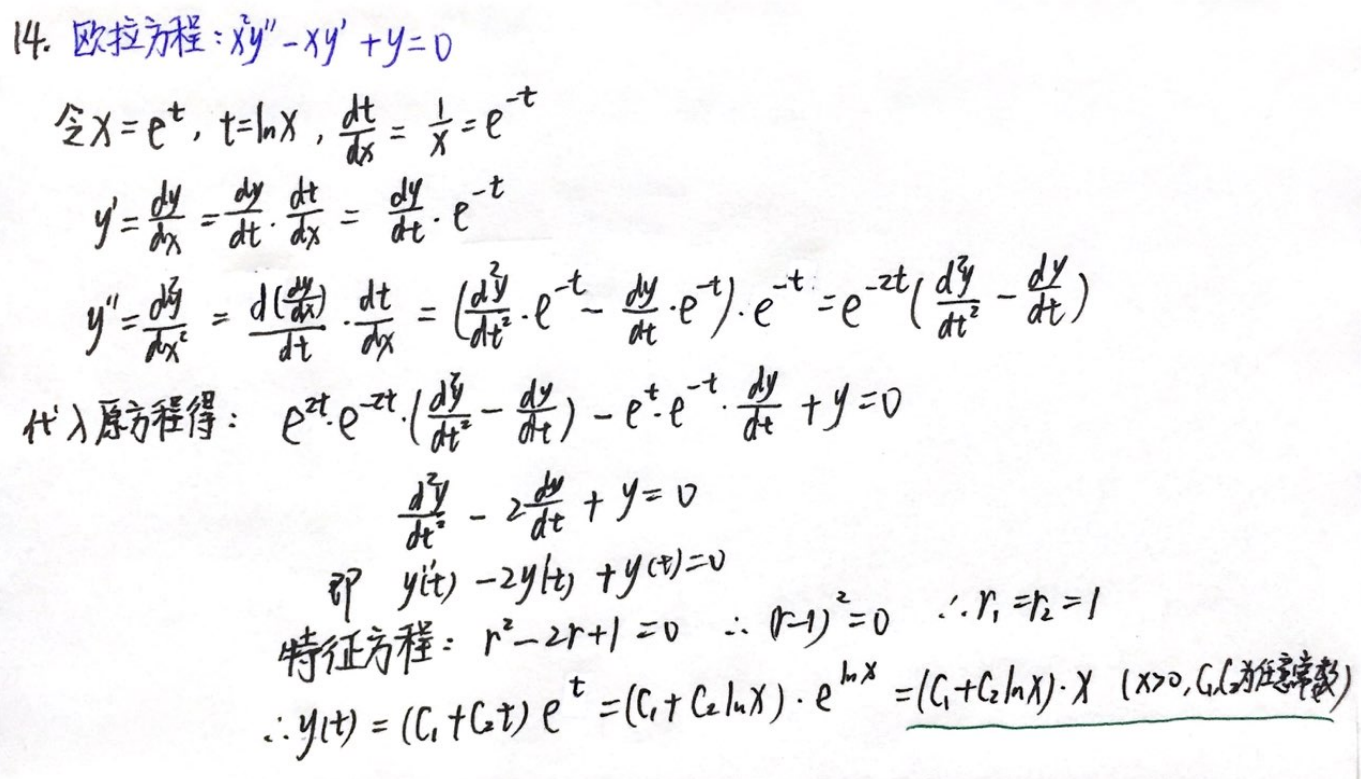 14. 欧拉方程：x²y'' - xy' + y = 0
令 x = e^t, t = ln x, dt/dx = 1/x = e^{-t}
y' = dy/dx = dy/dt · dt/dx = dy/dt · e^{-t}
y'' = d²y/dx² = d(dy/dx)/dt · dt/dx = (d²y/dt² · e^{-t} - dy/dt · e^{-t}) · e^{-t} = e^{-2t}(d²y/dt² - dy/dt)
代入原方程得： e^{2t} · e^{-2t} · (d²y/dt² - dy/dt) - e^t · e^{-t} · dy/dt + y = 0
d²y/dt² - 2dy/dt + y = 0
即 y''(t) - 2y'(t) + y(t) = 0
特征方程：r² - 2r + 1 = 0 ∴ (r-1)² = 0 ∴ r₁ = r₂ = 1
∴ y(t) = (C₁ + C₂t) e^t = (C₁ + C₂ ln x) · e^{ln x} = (C₁ + C₂ ln x) · x (x>0, C₁,C₂为任意常数)